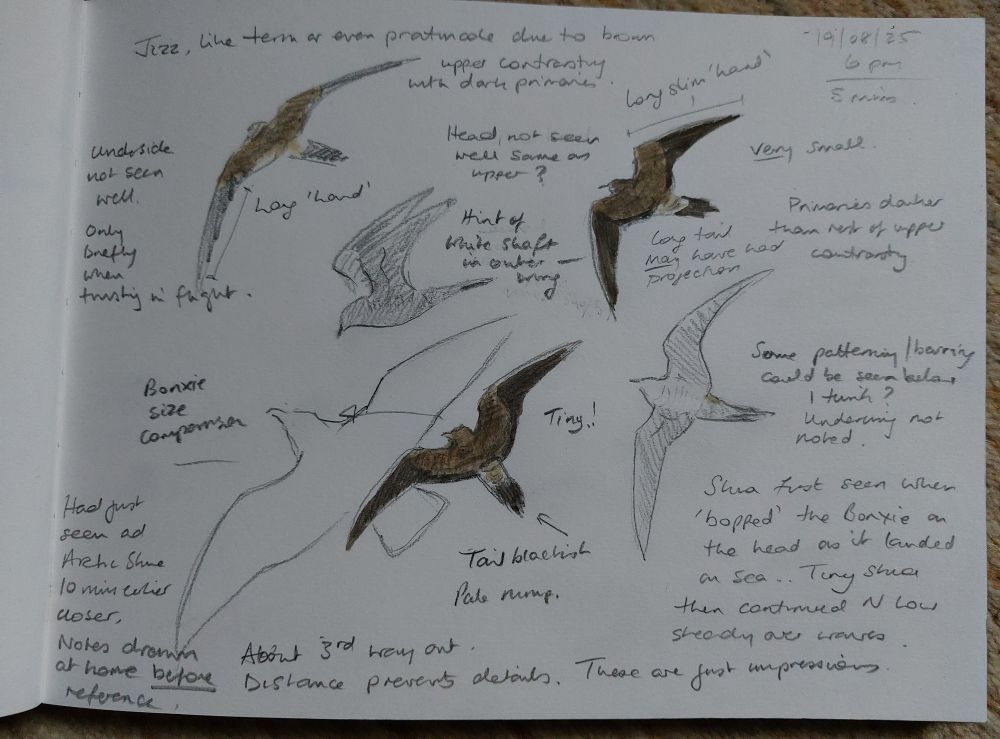 Jizz, like tern or even pratincole due to brown
upper contrasting
with dark primaries.
19/08/25
6 pm
5 mins.
Long slim 'hand'
Underside
not seen
well.
Only
briefly
when
twisting in flight.
Long 'hand'
Head, not seen
well same as
upper?
very small.
Hint of
white shaft
in outer
wing
Long tail
may have had
projection
Primaries darker
than rest of upper
contrasting
Bonxie
size
comparison
Tiny!
Some patterning/barring
could be seen below
I think?
Underwing not
noted.
Had just
seen ad
Arctic Skua
10 mins earlier
closer.
Notes drawn
at home before
reference.
Tail blackish
Pale rump.
Skua first seen when
'bopped' the Bonxie on
the head as it landed
on sea.. Tiny Skua
then continued N low
steady over waves.
About 3rd way out.
Distance prevents details. These are just impressions.